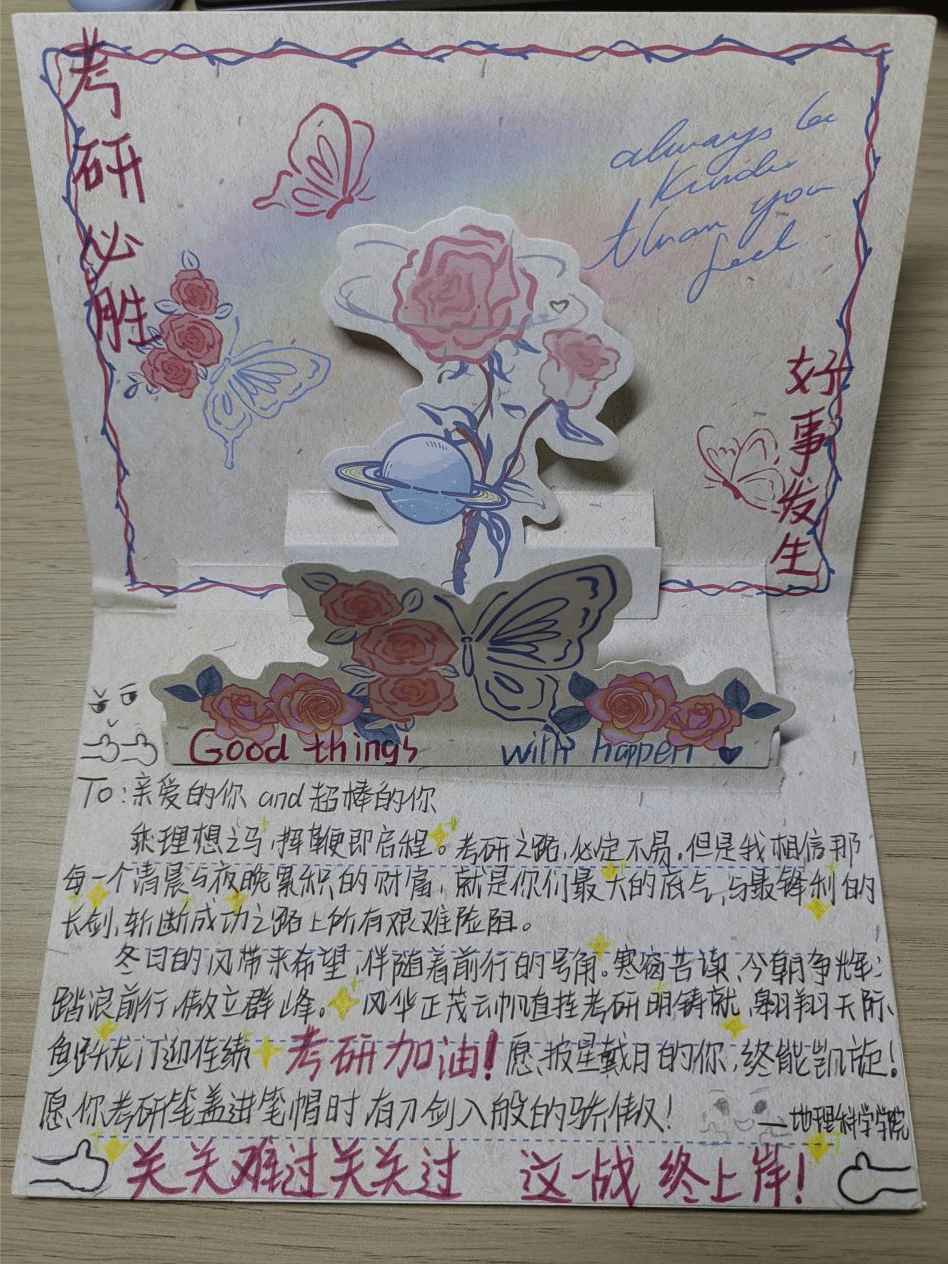 考研必胜
always be
kinder
than you
feel
好事发生
Good things with happen
To:亲爱的你 and 超棒的你
乘理想之马,挥鞭即启程。考研之路,必定不易。但是我相信那
每一个清晨与夜晚累积的财富,就是你们最大的底气,与最锋利的
长剑,斩断成功之路上所有艰难险阻。
冬日的风带来希望,伴随着前行的号角。寒窗苦读,今朝争辉;
踏浪前行,傲立群峰。风华正茂云帆直挂考研明铸就,翱翔天际、
鱼跃龙门迎佳绩 考研加油!愿披星戴月的你,终能凯旋!
愿你考研笔盖进笔帽时,有刀剑入般的骄傲! —地理科学学院
关关难过关关过 这一战 终上岸!